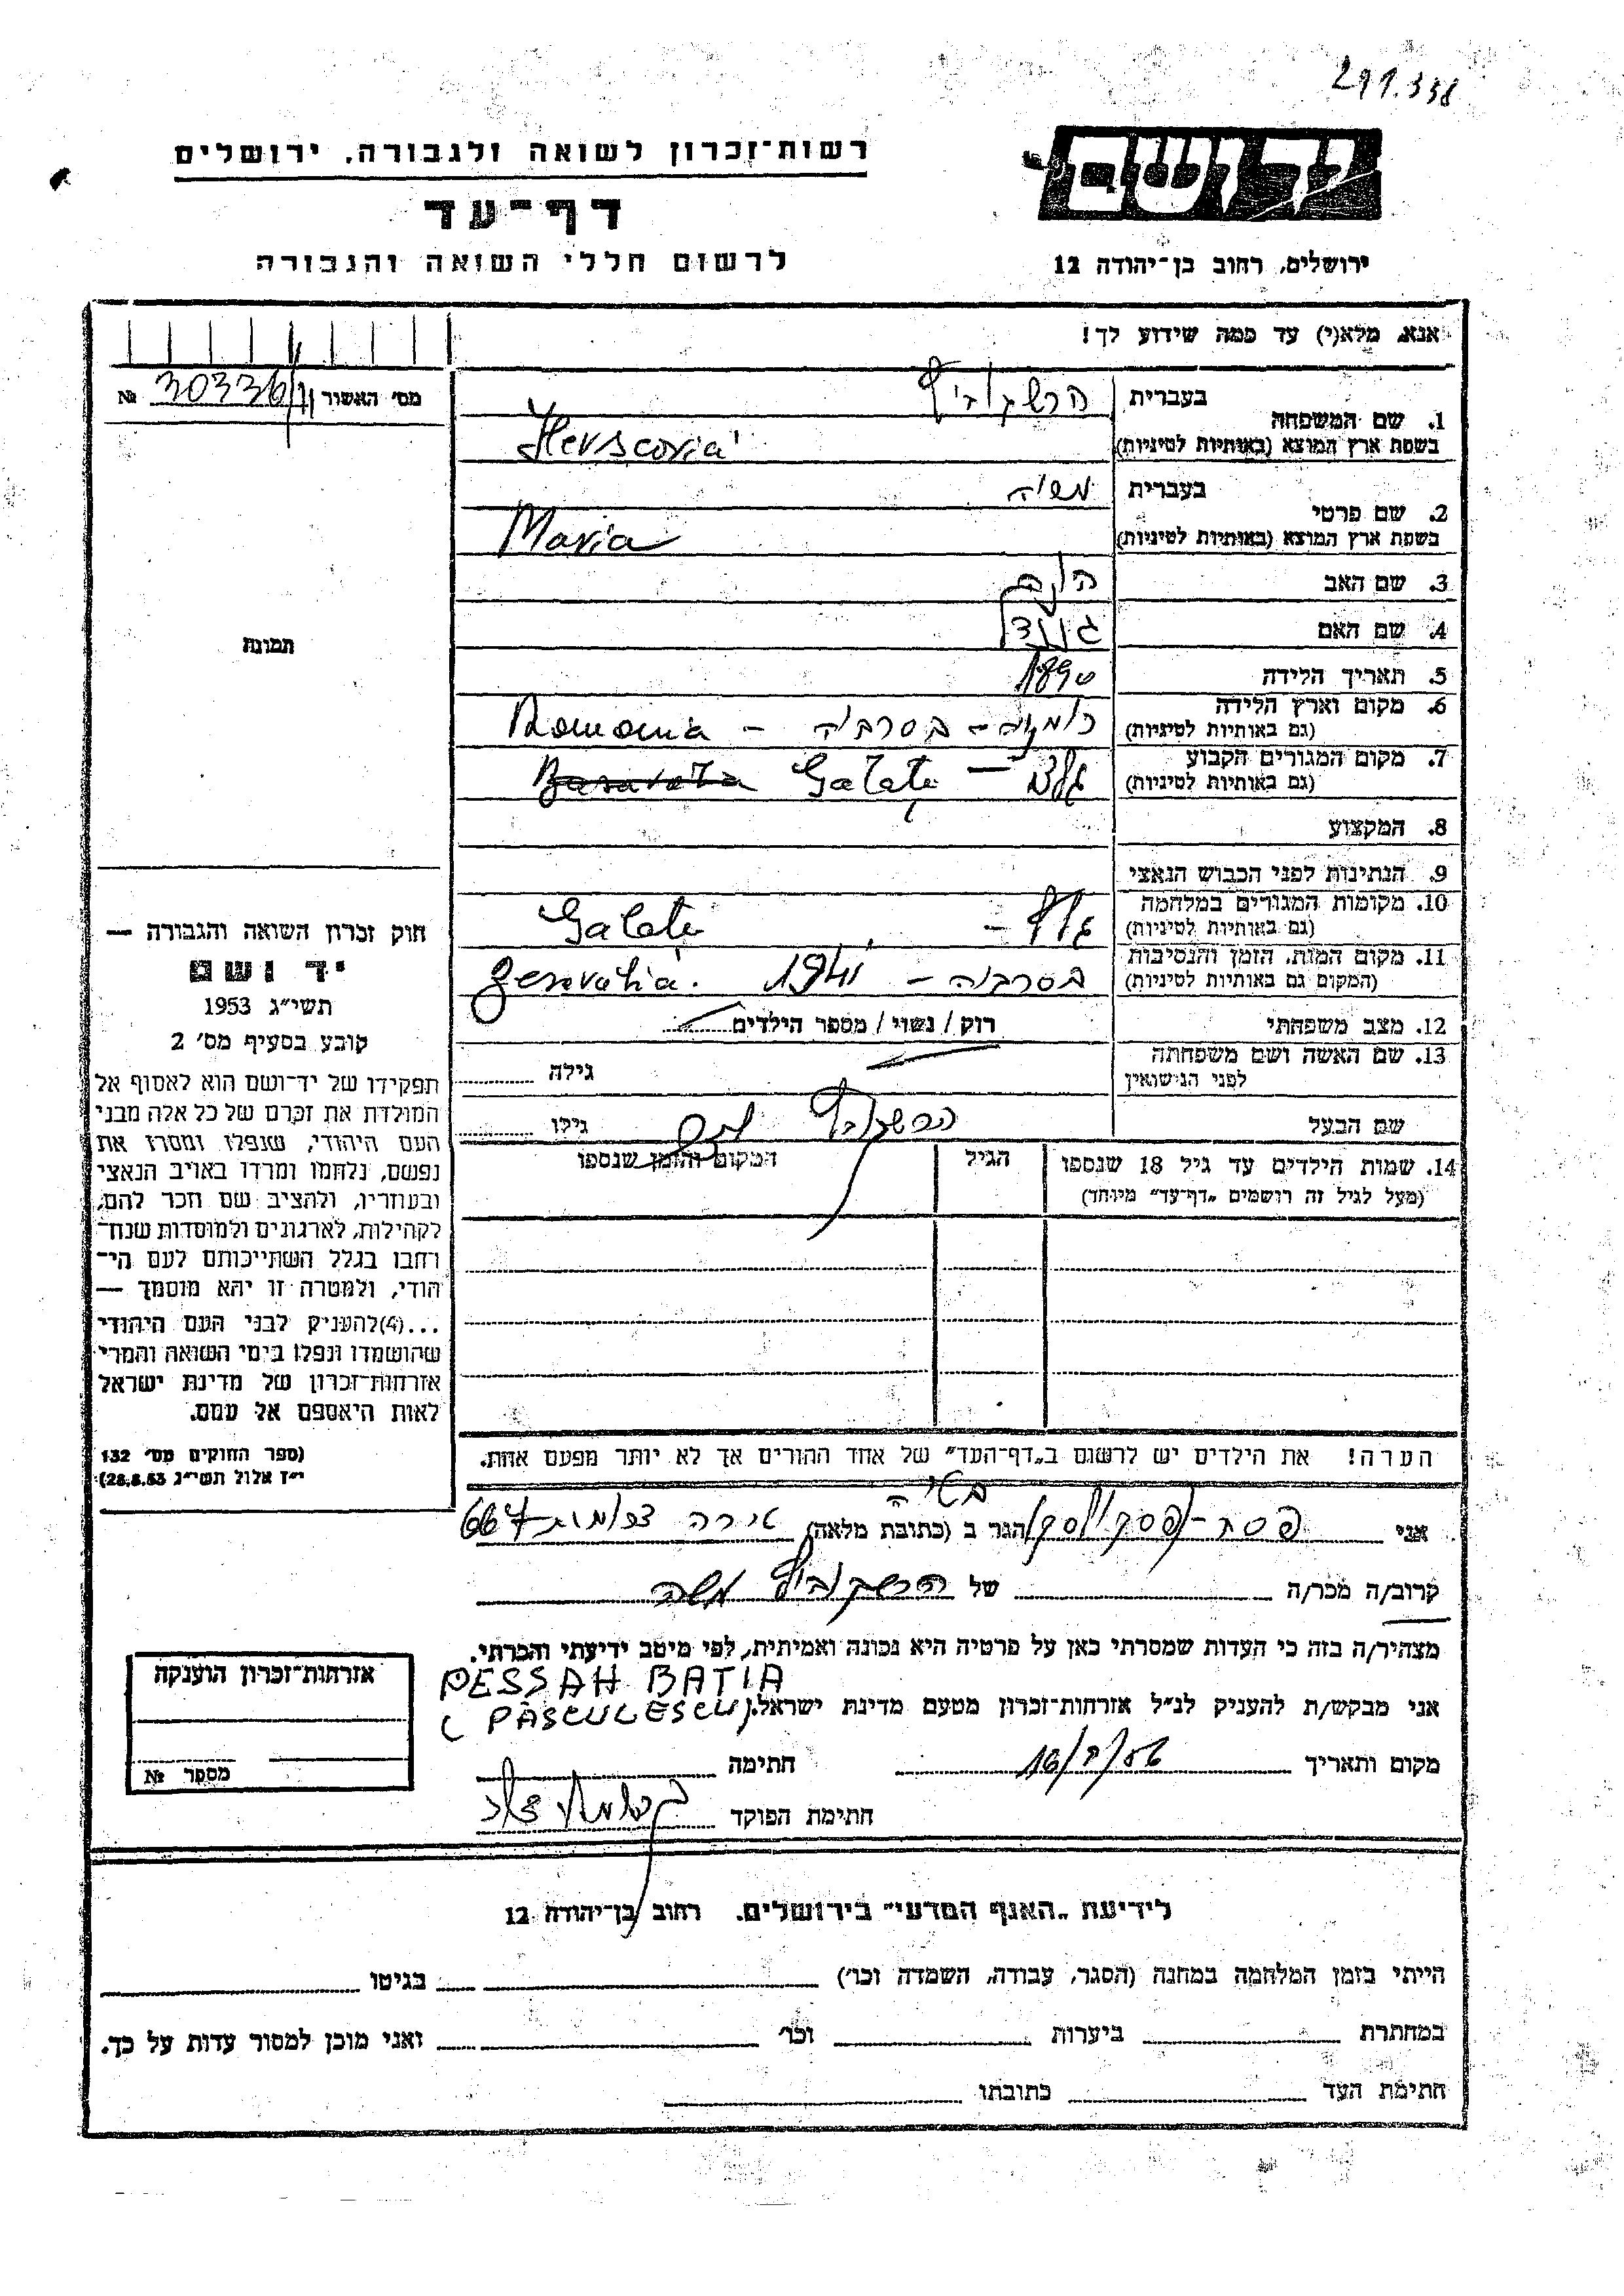 291.338
רשות־זכרון לשואה ולגבורה, ירושלים
יד ושם
דף־עד
לרשום חללי השואה והגבורה
ירושלים, רחוב בן־יהודה 12
אנא, מלא(י) עד כמה שידוע לך!
מס׳ האשור № 30336/11
1. שם המשפחה בעברית הרשקוביץ
בשפת ארץ המוצא (באותיות לטיניות)
2. שם פרטי בעברית
בשפת ארץ המוצא (באותיות לטיניות) Maria
3. שם האב
4. שם האם
5. תאריך הלידה 1890
6. מקום וארץ הלידה רומניה - בסרביה - Romania
(גם באותיות לטיניות)
7. מקום המגורים הקבוע גלץ - Galati
(גם באותיות לטיניות)
8. המקצוע
9. הנתינות לפני הכבוש הנאצי
10. מקומות המגורים במלחמה גלץ - Galati
(גם באותיות לטיניות)
11. מקום המות, הזמן והנסיבות בסרביה - 1941
(המקום גם באותיות לטיניות)
12. מצב משפחתי רוק / נשוי / מספר הילדים
13. שם האשה ושם משפחתה
לפני הנישואין גילה
שם הבעל הרשקוביץ גילו
14. שמות הילדים עד גיל 18 שנספו הגיל המקום והזמן שנספו
(מעל לגיל זה רושמים „דף־עד״ מיוחד)
תמונה
חוק זכרון השואה והגבורה —
יד ושם
תשי״ג 1953
קובע בסעיף מס׳ 2
תפקידו של יד־ושם הוא לאסוף אל
המולדת את זכרם של כל אלה מבני
העם היהודי, שנפלו ומסרו את
נפשם, נלחמו ומרדו באויב הנאצי
ובעוזריו, ולהציב שם וזכר להם,
לקהילות, לארגונים ולמוסדות שנח־
רחבו בגלל השתייכותם לעם הי־
הודי, ולמטרה זו יהא מוסמך —
...(4) להעניק לבני העם היהודי
שהושמדו ונפלו בימי השואה והמרי
אזרחות־זכרון של מדינת ישראל
לאות היאספם אל עמם.
(ספר החוקים מס׳ 132
י״ז אלול תשי״ג 28.8.53)
הערה! את הילדים יש לרשום ב„דף־העד״ של אחד ההורים אך לא יותר מפעם אחת.
בטיה
אני פסח הגר ב (כתובת מלאה) טירה 667
קרוב/ה מכר/ה של הרשקוביץ
מצהיר/ה בזה כי העדות שמסרתי כאן על פרטיה היא נכונה ואמיתית, לפי מיטב ידיעתי והכרתי.
PESSAH BATIA
אני מבקש/ת להעניק לנ״ל אזרחות־זכרון מטעם מדינת ישראל.
(PĂSCULESCU)
מקום ותאריך 16/7/56 חתימה
חתימת הפוקד
אזרחות־זכרון הוענקה
מספר №
לידיעת „האגף המדעי״ בירושלים, רחוב בן־יהודה 12
הייתי בזמן המלחמה במחנה (הסגר, עבודה, השמדה וכו׳) בגיטו
במחתרת ביערות וכו׳ ואני מוכן למסור עדות על כך.
חתימת העד כתובתו